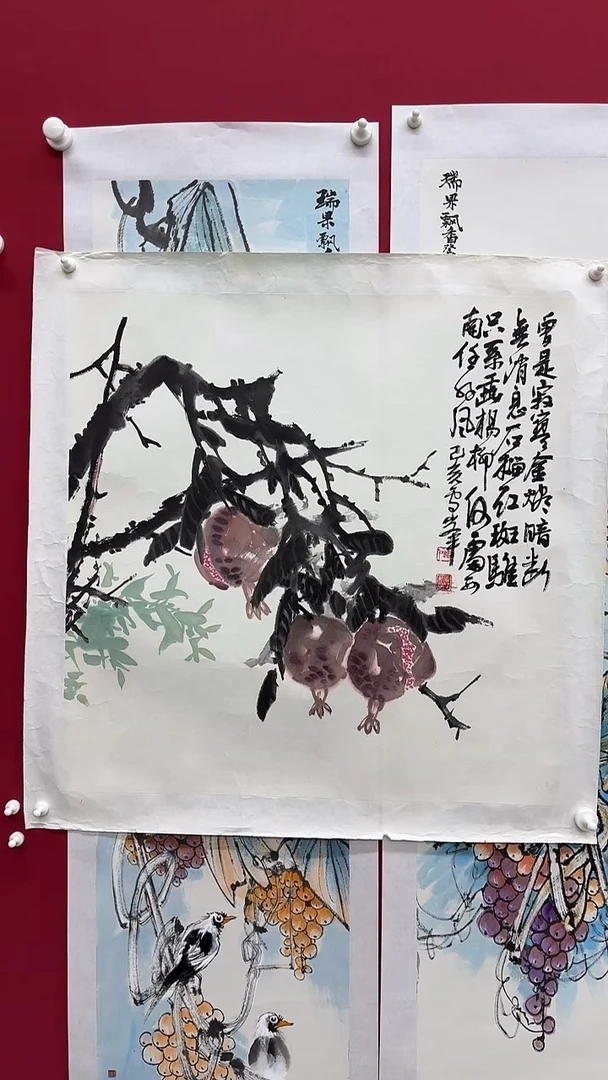 瑞果飘
瑞果飘香癸
曾是寂寥金烬暗断
無消息石榴红斑騅
只系垂楊柳何處西
南任好风己亥